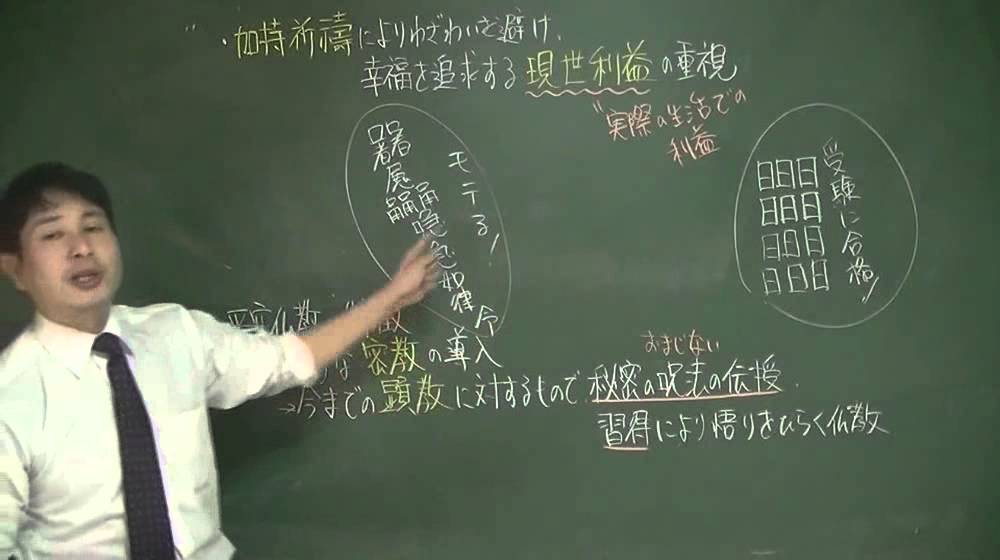 ・加持祈禱によりわざわいを避け、
幸福を追求する現世利益の重視
"実際の生活での
利益
モテる!
急如律令
受験に合格!
日日日
日日日
日日日
日日日
密教の導入
→今までの顕教に対するもので
おまじない
秘密の呪法の伝授、
習得により悟りをひらく仏教